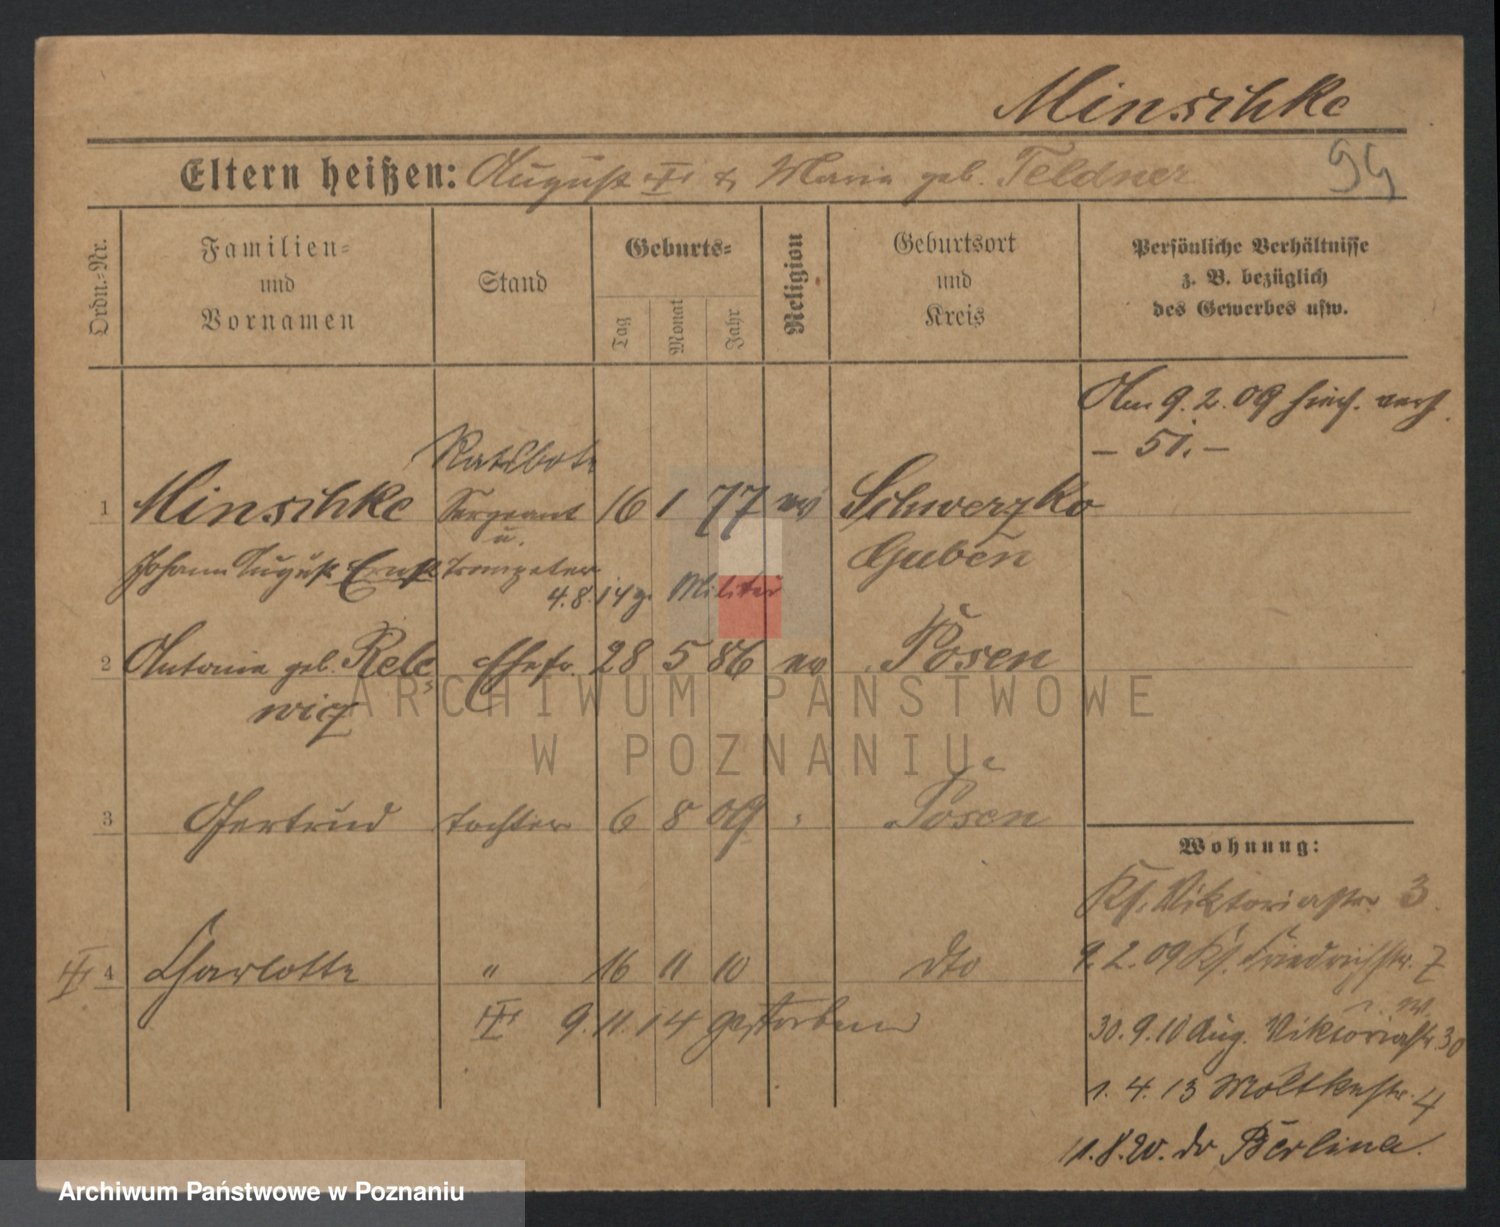 Minschke
Eltern heißen: August & Maria geb. Feldner
99
Ordn.-Nr.
Familien-
und
Vornamen
Stand
Geburts-
Tag
Monat
Jahr
Religion
Geburtsort
und
Kreis
Persönliche Verhältnisse
z. B. bezüglich
des Gewerbes usw.
Am 9.2.09
– 51. –
Ratsbote
1 Minschke Sergeant 16 1 77 ev Schwerzko
u.
Johann August Ernst Trompeter Guben
4.8.14 z. Militär
2 Antonie geb. Rele Ehefr. 28 5 86 ev Posen
wicz
3 Gertrud Tochter 6 8 09 Posen
Wohnung:
Viktoriastr. 3
4 Charlotte " 16 11 10 dto
9.2.09 Friedrichstr. 7
9.11.14 gestorben
30.9.10 Aug. Viktoriastr. 30
1.4.13 Moltkestr. 4
11.8.20. Berlin
ARCHIWUM PAŃSTWOWE
W POZNANIU
Archiwum Państwowe w Poznaniu